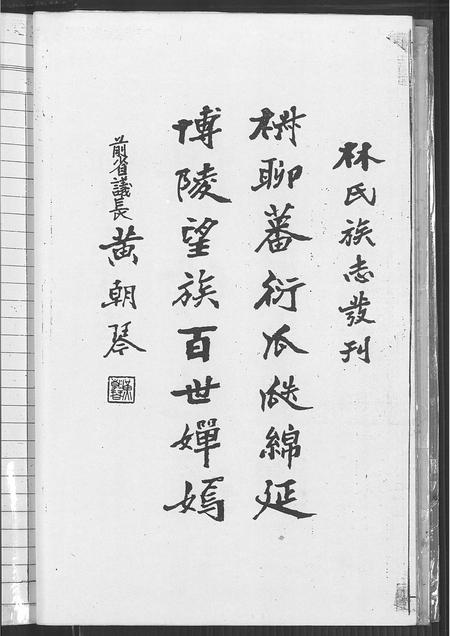 林氏族志發刊
椒聊蕃衍瓜瓞綿延
博陵望族百世嬋嫣
前省議長 黃朝琴